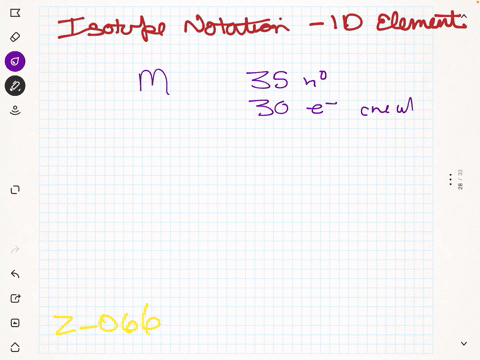 Isotope Notation - ID Element
M 35 n⁰
30 e⁻
Z-066
28 / 33